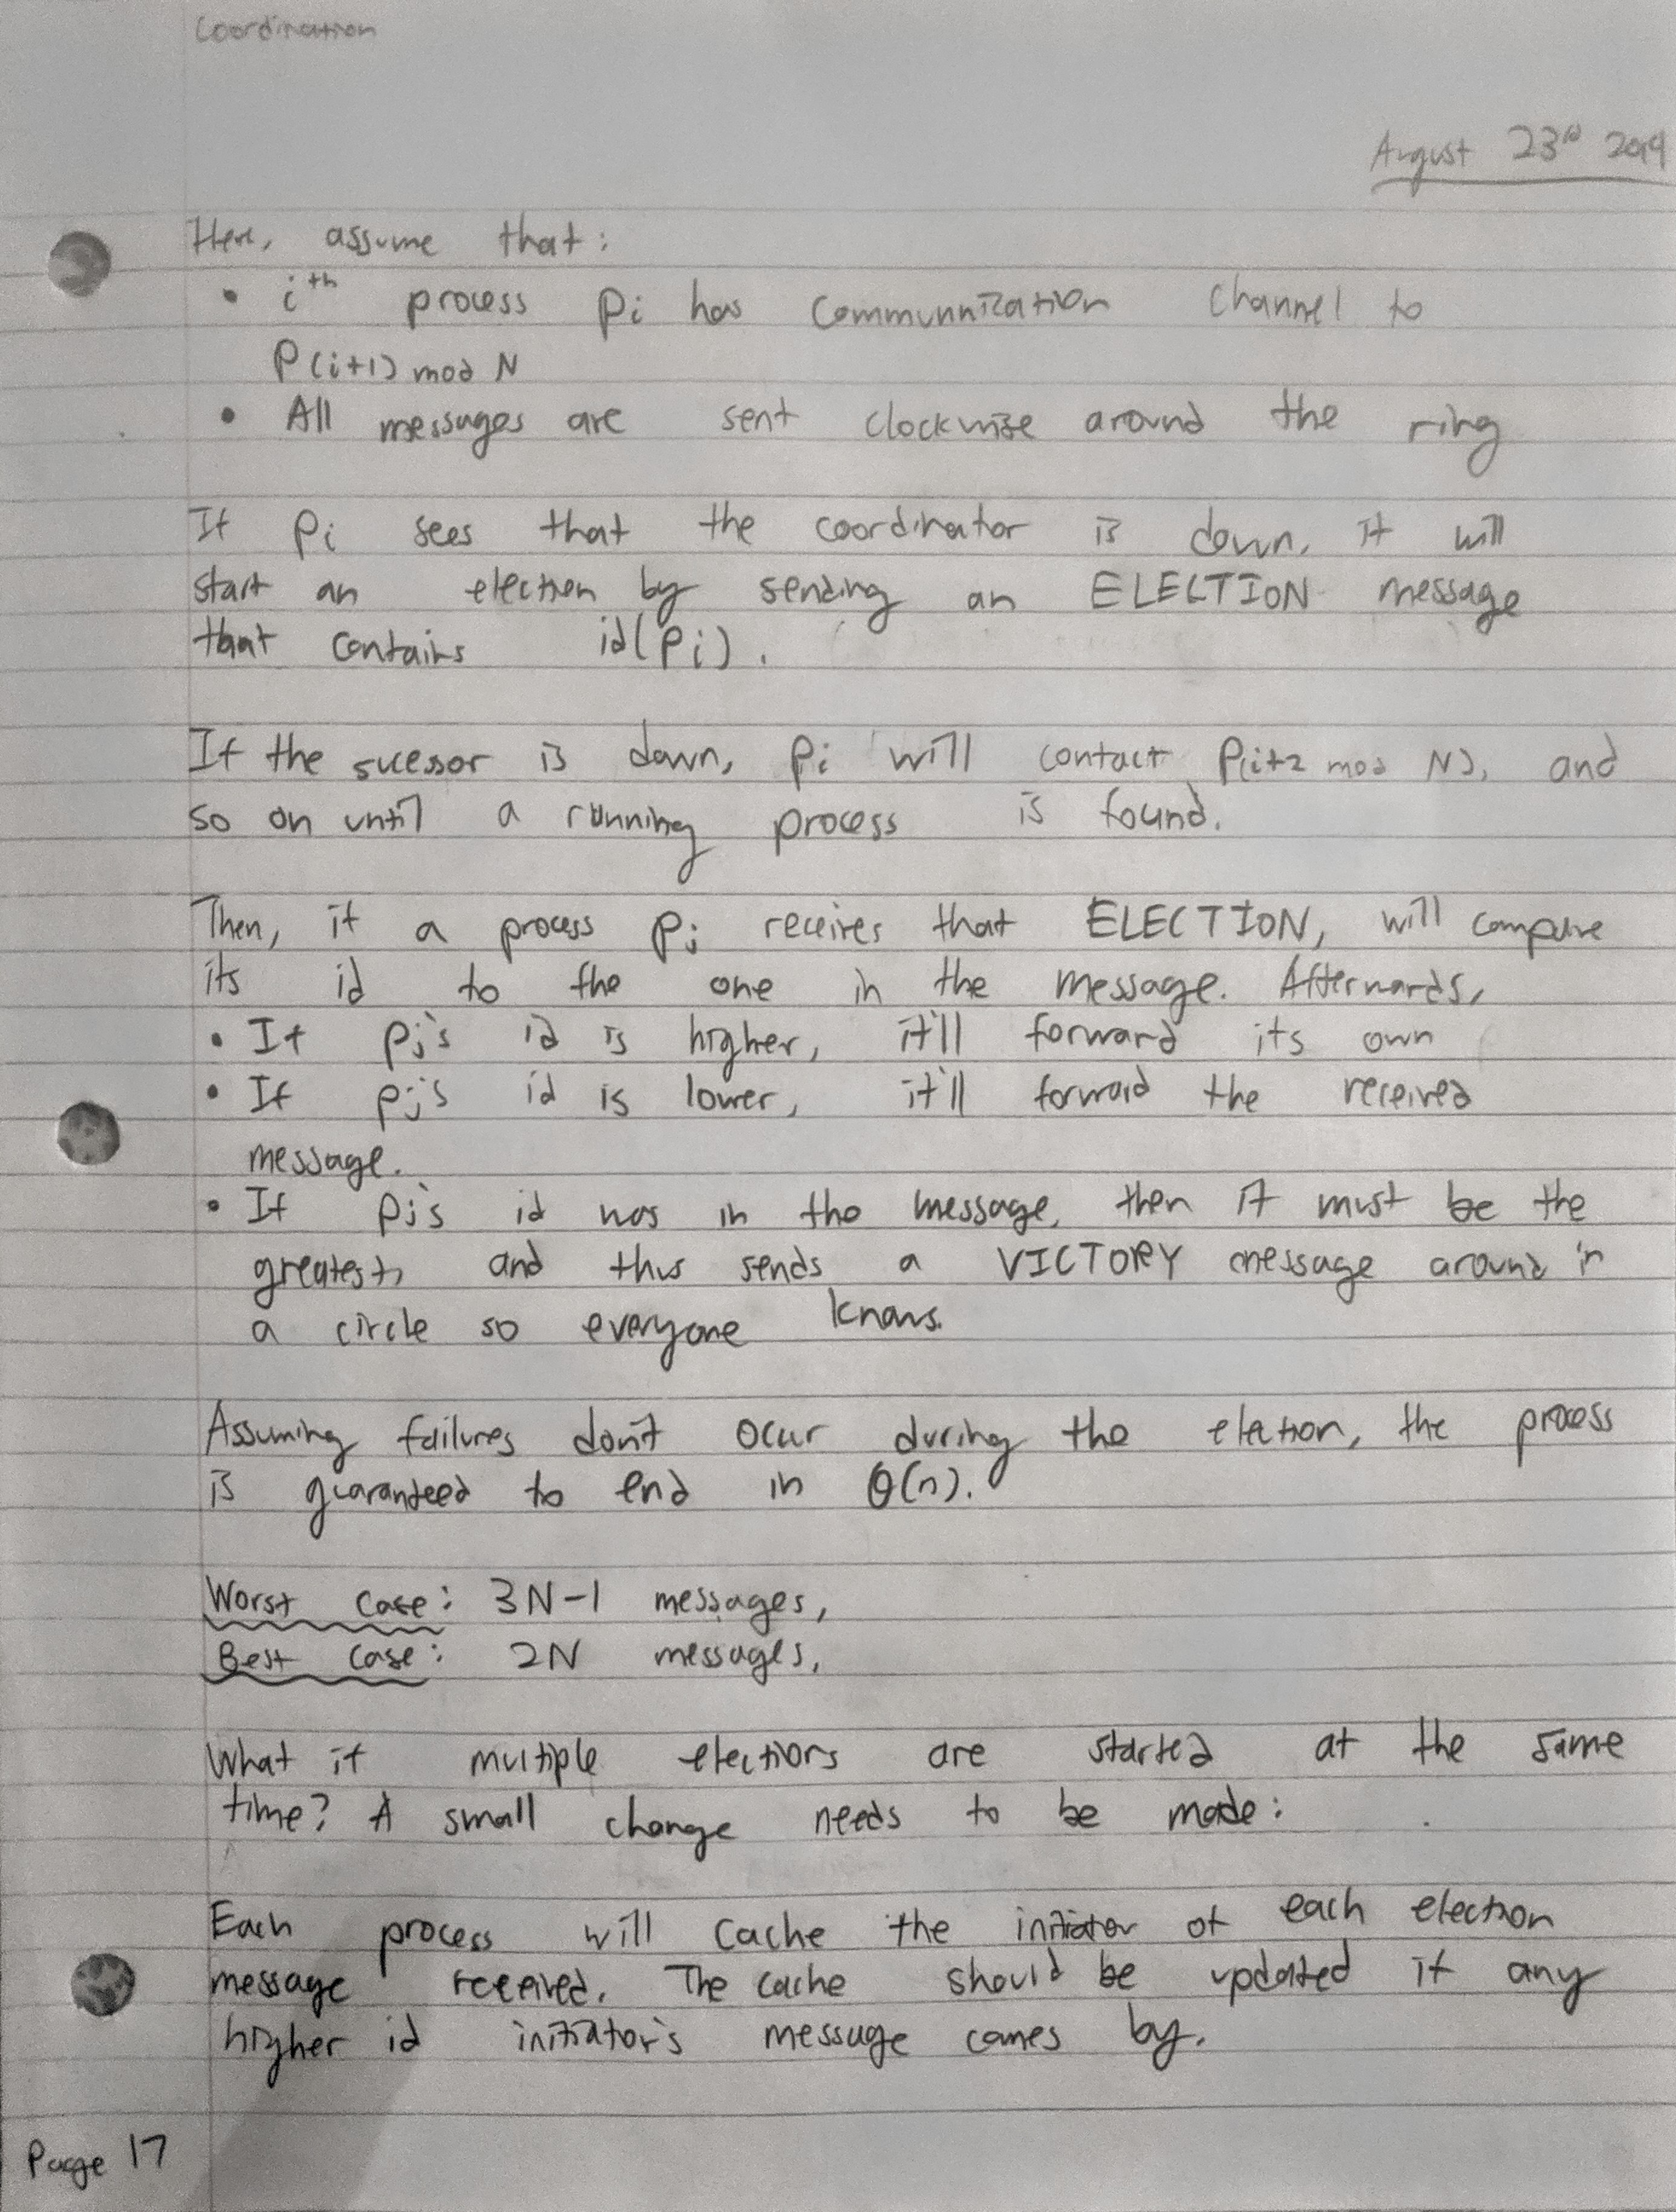 Coordination
August 23rd 2019
Here, assume that:
• ith process Pi has communnication channel to
P(i+1) mod N
• All messages are sent clockwise around the ring
If Pi sees that the coordinator is down, it will
start an election by sending an ELECTION message
that contains id(Pi).
If the sucessor is down, Pi will contact P(i+2 mod N), and
so on until a running process is found.
Then, if a process Pj receives that ELECTION, will compare
its id to the one in the message. Afterwards,
• If Pj's id is higher, it'll forward its own
• If Pj's id is lower, it'll forward the received
message.
• If Pj's id was in the message, then it must be the
greatest, and thus sends a VICTORY message around in
a circle so everyone knows.
Assuming failures don't occur during the election, the process
is guaranteed to end in θ(n).
Worst case: 3N-1 messages,
Best case: 2N messages,
What if multiple elections are started at the same
time? A small change needs to be made:
Each process will cache the initiator of each election
message received. The cache should be updated if any
higher id initiator's message comes by.
Page 17